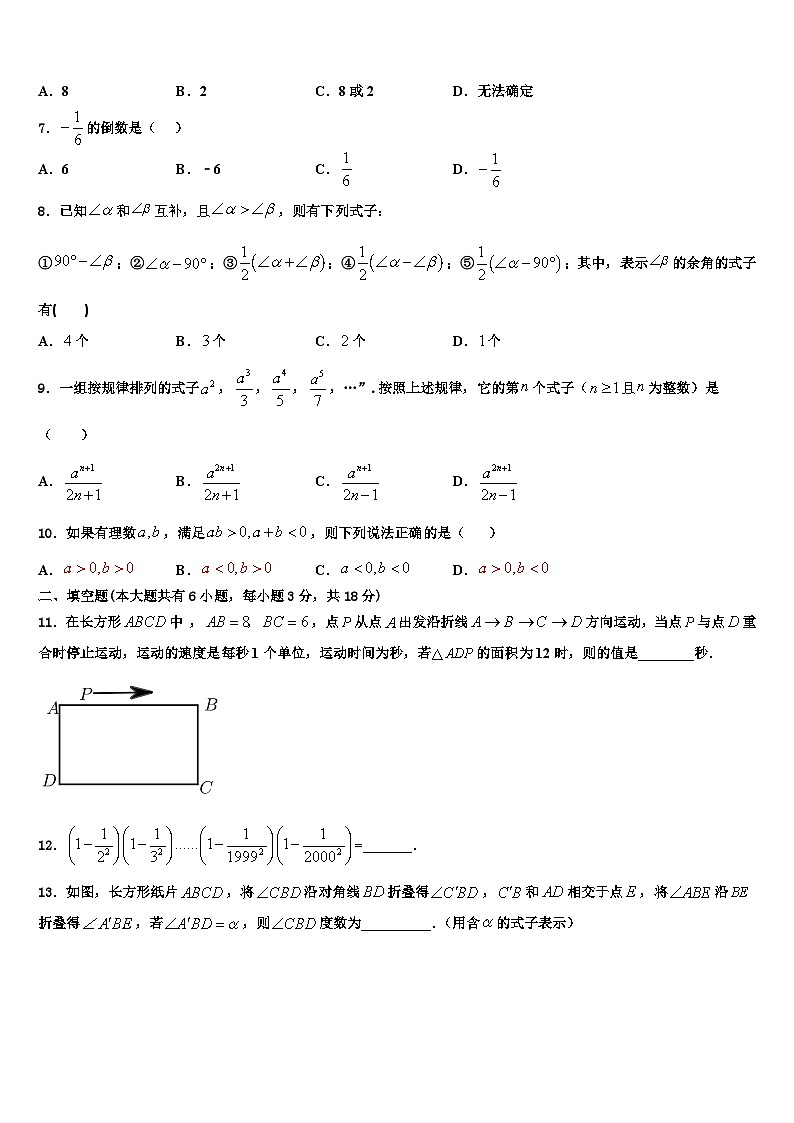 A．8 B．2 C．8 或 2 D．无法确定
7．$-\frac{1}{6}$的倒数是（ ）
A．6 B．﹣6 C．$\frac{1}{6}$ D．$-\frac{1}{6}$
8．已知∠α和∠β互补，且∠α＞∠β，则有下列式子：
①90°−∠β；②∠α−90°；③$\frac{1}{2}$(∠α+∠β)；④$\frac{1}{2}$(∠α−∠β)；⑤$\frac{1}{2}$(∠α−90°)；其中，表示∠β的余角的式子
有( )
A．4个 B．3个 C．2个 D．1个
9．一组按规律排列的式子$a^2$，$\frac{a^3}{3}$，$\frac{a^4}{5}$，$\frac{a^5}{7}$，…”．按照上述规律，它的第n个式子（n≥1且n为整数）是
（ ）
A．$\frac{a^{n+1}}{2n+1}$ B．$\frac{a^{2n+1}}{2n+1}$ C．$\frac{a^{n+1}}{2n-1}$ D．$\frac{a^{2n+1}}{2n-1}$
10．如果有理数a,b，满足ab＞0,a+b＜0，则下列说法正确的是（ ）
A．a＞0,b＞0 B．a＜0,b＞0 C．a＜0,b＜0 D．a＞0,b＜0
二、填空题(本大题共有 6 小题，每小题 3 分，共 18 分)
11．在长方形ABCD中 ，AB=8, BC=6，点P从点A出发沿折线A→B→C→D方向运动，当点P与点D重
合时停止运动，运动的速度是每秒 1 个单位，运动时间为秒，若△ADP的面积为 12 时，则的值是________秒．
P
A B
D C
12．$\left(1-\frac{1}{2^2}\right)\left(1-\frac{1}{3^2}\right)……\left(1-\frac{1}{1999^2}\right)\left(1-\frac{1}{2000^2}\right)$=_______．
13．如图，长方形纸片ABCD，将∠CBD沿对角线BD折叠得∠C′BD，C′B和AD相交于点E，将∠ABE沿BE
折叠得∠A′BE，若∠A′BD=α，则∠CBD度数为__________．（用含α的式子表示）